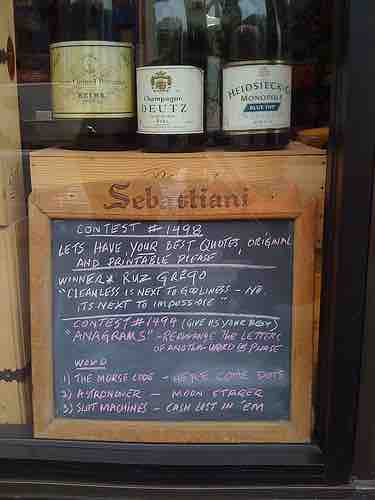 REIMS
Champagne
DEUTZ
HEIDSIECK & Co
MONOPOLE
BLUE TOP
Sebastiani
CONTEST # 1498
LETS HAVE YOUR BEST QUOTES, ORIGINAL
AND PRINTABLE PLEASE
WINNER RUZ GREGO
"CLEANLESS IS NEXT TO GODLINESS - NO,
ITS NEXT TO IMPOSSIBLE"
CONTEST # 1499 (GIVE US YOUR BEST)
"ANAGRAMS" - REARRANGE THE LETTERS
OF ANOTHER WORD ES PLEASE
WORD
1) THE MORSE CODE - HERE COME DOTS
2) ASTRONOMER - MOON STARER
3) SLOT MACHINES - CASH LOST IN 'EM